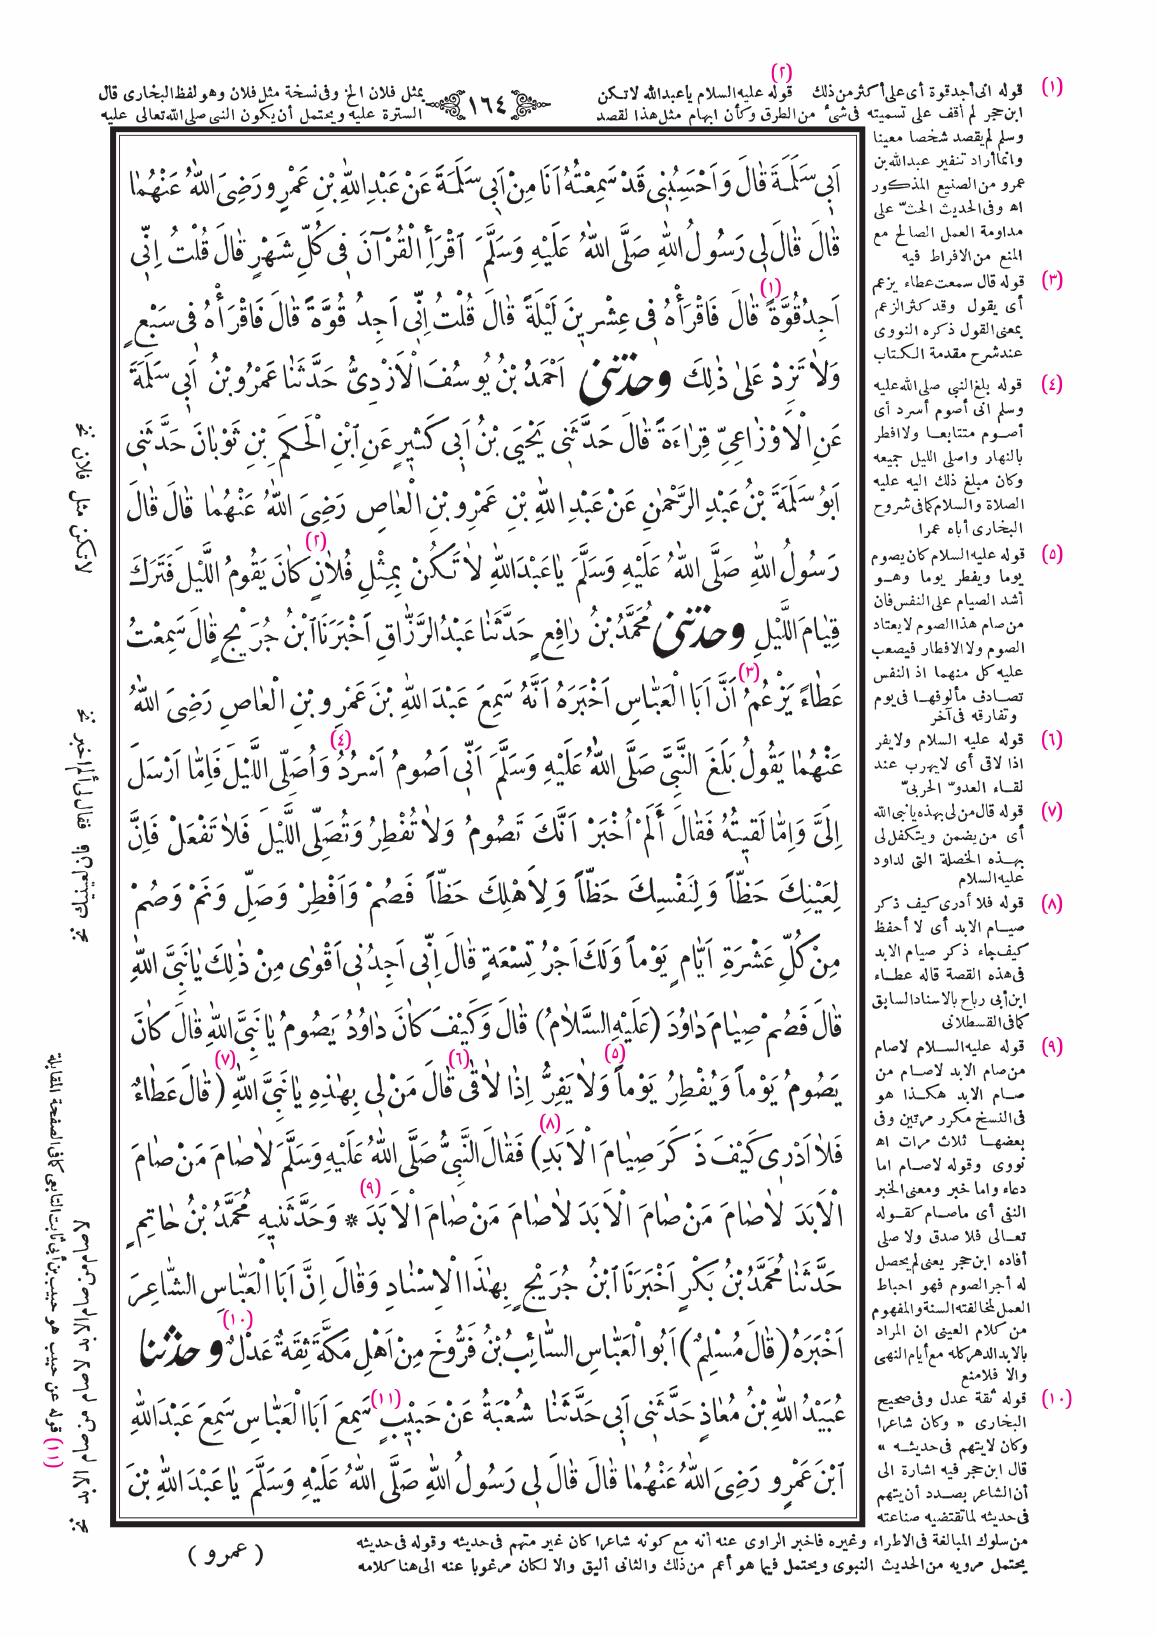 (١) قوله انى أجد قوة أى على أكثر من ذلك
(٢) قوله عليه السلام يا عبدالله لا تكن بمثل فلان الخ وفى نسخة مثل فلان وهو لفظ البخارى قال
ابن حجر لم أقف على تسميته فى شئ من الطرق وكأن ابهام مثل هذا لقصد السترة عليه ويحتمل أن يكون النبى صلى الله تعالى عليه
١٦٤
وسلم لم يقصد شخصا معينا
وانما أراد تنفير عبدالله بن
عمرو من الصنيع المذكور
اه وفى الحديث الحثّ على
مداومة العمل الصالح مع
المنع من الافراط فيه
(٣) قوله قال سمعت عطاء يزعم
أى يقول وقد كثر الزعم
بمعنى القول ذكره النووى
عند شرح مقدمة الكتاب
(٤) قوله بلغ النبى صلى الله عليه
وسلم انى أصوم أسرد أى
أصوم متتابعا ولا افطر
بالنهار واصلى الليل جميعه
وكان مبلغ ذلك اليه عليه
الصلاة والسلام كما فى شروح
البخارى أباه عمرا
(٥) قوله عليه السلام كان يصوم
يوما ويفطر يوما وهو
أشد الصيام على النفس فان
من صام هذا الصوم لا يعتاد
الصوم ولا الافطار فيصعب
عليه كل منهما اذ النفس
تصادف مألوفها فى يوم
وتفارقه فى آخر
(٦) قوله عليه السلام ولا يفر
اذا لاقى أى لا يهرب عند
لقاء العدوّ الحربىّ
(٧) قوله قال من لى بهذه يا نبى الله
أى من يضمن ويتكفل لى
بهذه الخصلة التى لداود
عليه السلام
(٨) قوله فلا أدرى كيف ذكر
صيام الابد أى لا أحفظ
كيف جاء ذكر صيام الابد
فى هذه القصة قاله عطاء
ابن أبى رباح بالاسناد السابق
كما فى القسطلانى
(٩) قوله عليه السلام لا صام
من صام الابد لا صام من
صام الابد هكذا هو
فى النسخ مكرر مرتين وفى
بعضها ثلاث مرات اه
نووى وقوله لا صام اما
دعاء واما خبر ومعنى الخبر
النفى أى ما صام كقوله
تعالى فلا صدق ولا صلى
أفاده ابن حجر يعنى لم يحصل
له أجر الصوم فهو احباط
العمل لمخالفته السنة والمفهوم
من كلام العينى ان المراد
بالابد الدهر كله مع أيام النهى
والا فلا منع
(١٠) قوله ثقة عدل وفى صحيح
البخارى « وكان شاعرا
وكان لا يتهم فى حديثه »
قال ابن حجر فيه اشارة الى
أن الشاعر بصدد أن يتهم
فى حديثه لما تقتضيه صناعته
من سلوك المبالغة فى الاطراء وغيره فاخبر الراوى عنه أنه مع كونه شاعرا كان غير متهم فى حديثه وقوله فى حديثه
يحتمل مرويه من الحديث النبوى ويحتمل فيما هو أعم من ذلك والثانى أليق والا لكان مرغوبا عنه الى هنا كلامه
اَبِى سَلَمَةَ قَالَ وَاَحْسَبُنِى قَدْ سَمِعْتُهُ اَنَا مِنْ اَبِى سَلَمَةَ عَنْ عَبْدِ اللهِ بْنِ عَمْرٍو رَضِىَ اللهُ عَنْهُمَا
قَالَ قَالَ لِى رَسُولُ اللهِ صَلَّى اللهُ عَلَيْهِ وَسَلَّمَ اَقْرَأِ الْقُرْآنَ فِى كُلِّ شَهْرٍ قَالَ قُلْتُ اِنِّى
اَجِدُ قُوَّةً (١) قَالَ فَاقْرَأْهُ فِى عِشْرِينَ لَيْلَةً قَالَ قُلْتُ اِنِّى اَجِدُ قُوَّةً قَالَ فَاقْرَأْهُ فِى سَبْعٍ
وَلَا تَزِدْ عَلَى ذٰلِكَ وحدثنى اَحْمَدُ بْنُ يُوسُفَ الْاَزْدِىُّ حَدَّثَنَا عَمْرُو بْنُ اَبِى سَلَمَةَ
عَنِ الْاَوْزَاعِىِّ قِرَاءَةً قَالَ حَدَّثَنِى يَحْيَى بْنُ اَبِى كَثِيرٍ عَنِ ابْنِ الْحَكَمِ بْنِ ثَوْبَانَ حَدَّثَنِى
اَبُو سَلَمَةَ بْنُ عَبْدِ الرَّحْمٰنِ عَنْ عَبْدِ اللهِ بْنِ عَمْرِو بْنِ الْعَاصِ رَضِىَ اللهُ عَنْهُمَا قَالَ قَالَ
رَسُولُ اللهِ صَلَّى اللهُ عَلَيْهِ وَسَلَّمَ يَا عَبْدَ اللهِ لَا تَكُنْ بِمِثْلِ فُلَانٍ (٢) كَانَ يَقُومُ اللَّيْلَ فَتَرَكَ
قِيَامَ اللَّيْلِ وحدثنى مُحَمَّدُ بْنُ رَافِعٍ حَدَّثَنَا عَبْدُ الرَّزَّاقِ اَخْبَرَنَا ابْنُ جُرَيْجٍ قَالَ سَمِعْتُ
عَطَاءً يَزْعُمُ (٣) اَنَّ اَبَا الْعَبَّاسِ اَخْبَرَهُ اَنَّهُ سَمِعَ عَبْدَ اللهِ بْنَ عَمْرِو بْنِ الْعَاصِ رَضِىَ اللهُ
عَنْهُمَا يَقُولُ بَلَغَ النَّبِىَّ صَلَّى اللهُ عَلَيْهِ وَسَلَّمَ اَنِّى اَصُومُ اَسْرُدُ (٤) وَاُصَلِّى اللَّيْلَ فَاِمَّا اَرْسَلَ
اِلَىَّ وَاِمَّا لَقِيتُهُ فَقَالَ أَلَمْ اُخْبَرْ اَنَّكَ تَصُومُ وَلَا تُفْطِرُ وَتُصَلِّى اللَّيْلَ فَلَا تَفْعَلْ فَاِنَّ
لِعَيْنِكَ حَظّاً وَلِنَفْسِكَ حَظّاً وَلِاَهْلِكَ حَظّاً فَصُمْ وَاَفْطِرْ وَصَلِّ وَنَمْ وَصُمْ
مِنْ كُلِّ عَشْرَةِ اَيَّامٍ يَوْماً وَلَكَ اَجْرُ تِسْعَةٍ قَالَ اِنِّى اَجِدُنِى اَقْوٰى مِنْ ذٰلِكَ يَا نَبِىَّ اللهِ
قَالَ فَصُمْ صِيَامَ دَاوُدَ (عَلَيْهِ السَّلَامُ) قَالَ وَكَيْفَ كَانَ دَاوُدُ يَصُومُ يَا نَبِىَّ اللهِ قَالَ كَانَ
يَصُومُ يَوْماً وَيُفْطِرُ يَوْماً (٥) وَلَا يَفِرُّ اِذَا لَاقٰى (٦) قَالَ مَنْ لِى بِهٰذِهِ يَا نَبِىَّ اللهِ (٧) (قَالَ عَطَاءٌ
فَلَا اَدْرِى كَيْفَ ذَكَرَ صِيَامَ الْاَبَدِ) (٨) فَقَالَ النَّبِىُّ صَلَّى اللهُ عَلَيْهِ وَسَلَّمَ لَا صَامَ مَنْ صَامَ
الْاَبَدَ لَا صَامَ مَنْ صَامَ الْاَبَدَ لَا صَامَ مَنْ صَامَ الْاَبَدَ (٩) * وَحَدَّثَنِيهِ مُحَمَّدُ بْنُ حَاتِمٍ
حَدَّثَنَا مُحَمَّدُ بْنُ بَكْرٍ اَخْبَرَنَا ابْنُ جُرَيْجٍ بِهٰذَا الْاِسْنَادِ وَقَالَ اِنَّ اَبَا الْعَبَّاسِ الشَّاعِرَ
اَخْبَرَهُ (قَالَ مُسْلِمٌ) اَبُو الْعَبَّاسِ السَّائِبُ بْنُ فَرُّوخَ مِنْ اَهْلِ مَكَّةَ ثِقَةٌ عَدْلٌ (١٠) وحدثنا
عُبَيْدُ اللهِ بْنُ مُعَاذٍ حَدَّثَنِى اَبِى حَدَّثَنَا شُعْبَةُ عَنْ حَبِيبٍ (١١) سَمِعَ اَبَا الْعَبَّاسِ سَمِعَ عَبْدَ اللهِ
ابْنَ عَمْرٍو رَضِىَ اللهُ عَنْهُمَا قَالَ قَالَ لِى رَسُولُ اللهِ صَلَّى اللهُ عَلَيْهِ وَسَلَّمَ يَا عَبْدَ اللهِ بْنَ
( عمرو )
لا تكن مثل فلان نخ
فقال لى ألم اخبر نخ
فان لعينيك نخ
لا صام من صام الابد نخ
(١١) قوله عن حبيب هو حبيب بن أبى ثابت التابعى كما فى الصفحة المقابلة